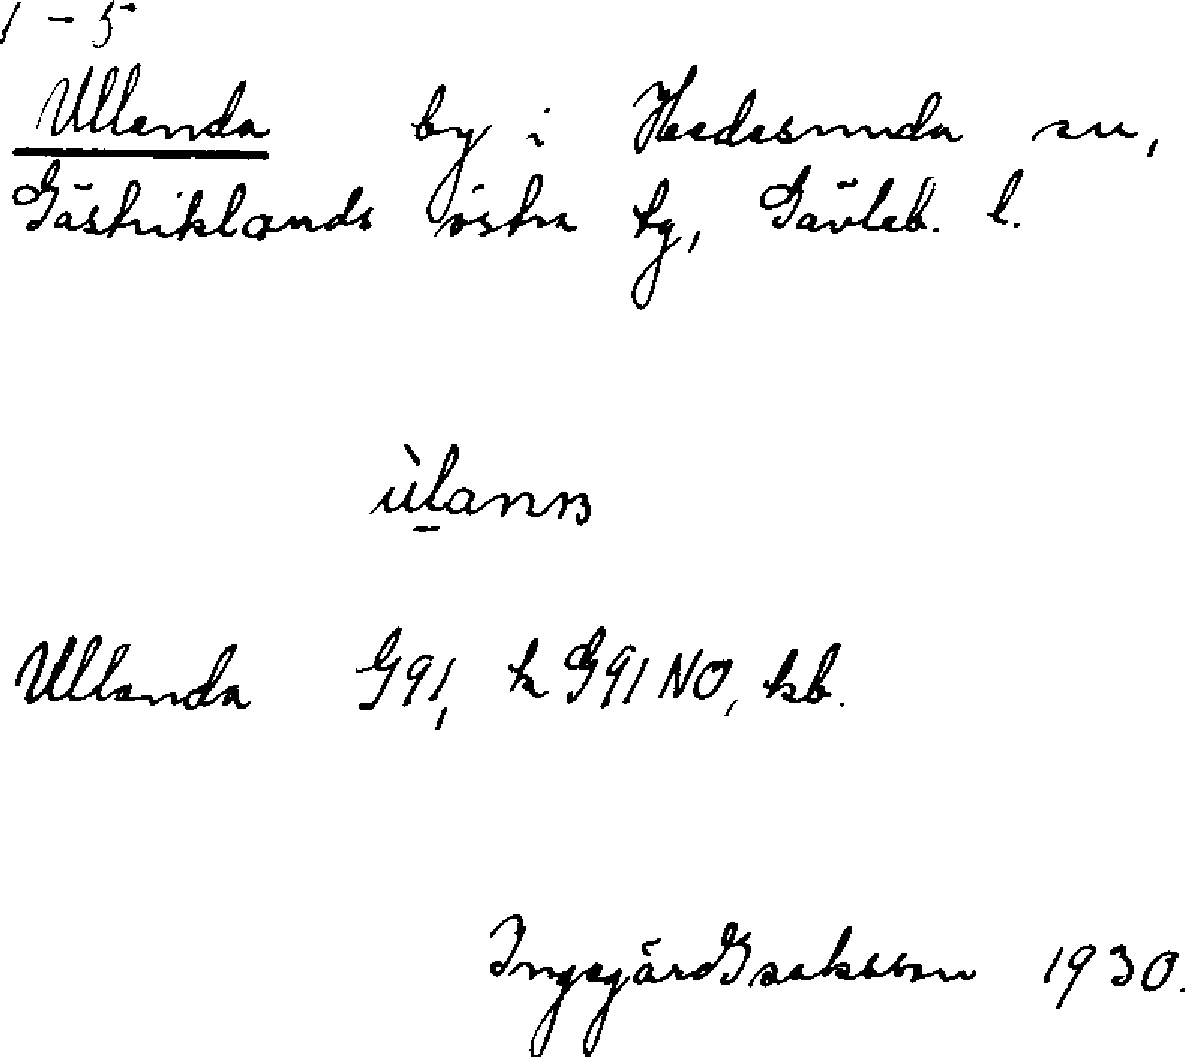 1-5
Ullanda by i Hedesunda sn,
Gästriklands östra tg, Gävleb. l.
ùlanɴʙ
Ullanda G91, k G91 NO, kb.
Ingegärd Isaksson 1930.